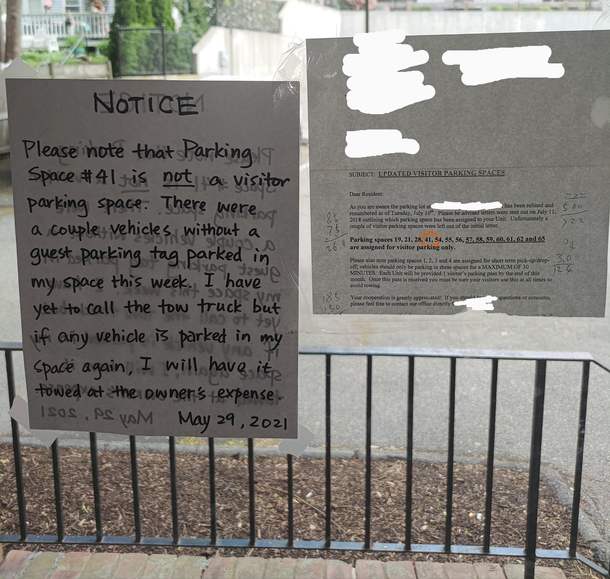 NOTICE
Please note that Parking
Space #41 is not a visitor
parking space. There were
a couple vehicles without a
guest parking tag parked in
my space this week. I have
yet to call the tow truck but
if any vehicle is parked in my
space again, I will have it
towed at the owner's expense.
May 29, 2021
SUBJECT: UPDATED VISITOR PARKING SPACES
Dear Resident:
As you are aware the parking lot at has been relined and
renumbered as of Tuesday, July 10th. Please be advised letters were sent out on July 11,
2018 outlining which parking space has been assigned to your Unit. Unfortunately a
couple of visitor parking spaces were left out of the initial letter.
Parking spaces 19, 21, 28, 41, 54, 55, 56, 57, 58, 59, 60, 61, 62 and 65
are assigned for visitor parking only.
Please also note parking spaces 1, 2, 3 and 4 are assigned for short term pick-up/drop-
off; vehicles should only be parking in these spaces for a MAXIMUM OF 30
MINUTES. Each Unit will be provided 1 visitor's parking pass by the end of this
month. Once this pass is received you must be sure your visitors use this at all times to
avoid towing.
Your cooperation is greatly appreciated! If you should questions or concerns,
please feel free to contact our office directly